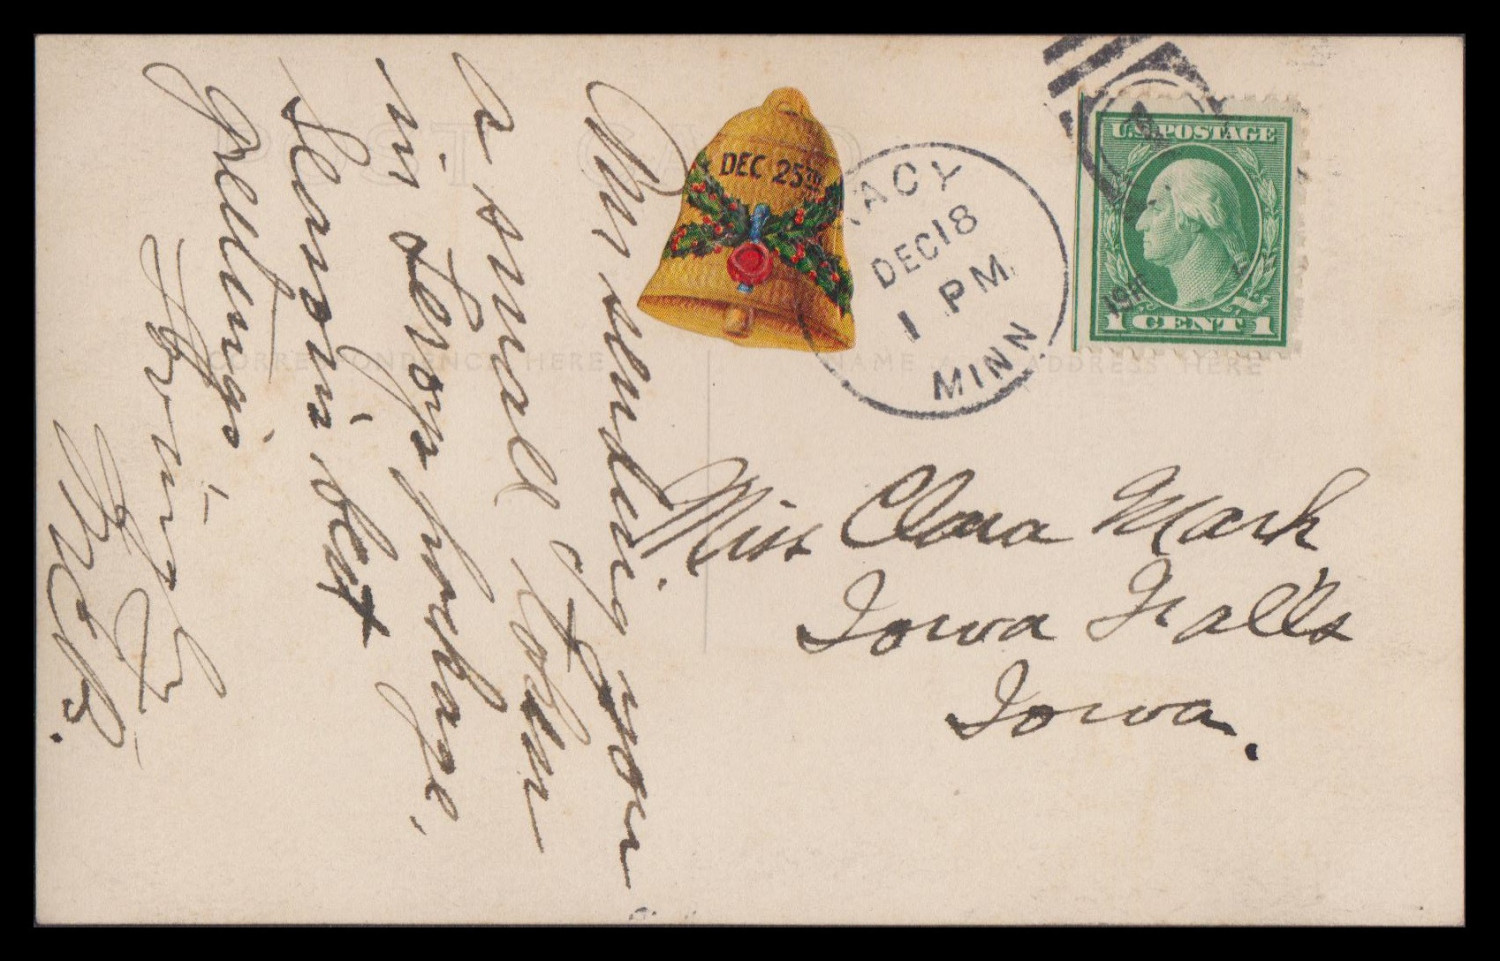 POST CARD
DEC 25TH
TRACY
DEC 18
1 PM
MINN
191
U.S. POSTAGE
1 CENT 1
CORRESPONDENCE HERE
NAME AND ADDRESS HERE
Am sending you
a small token
in Leroys package.
Season's best
greetings
Miss Clara Mark
Iowa Fall's
Iowa.